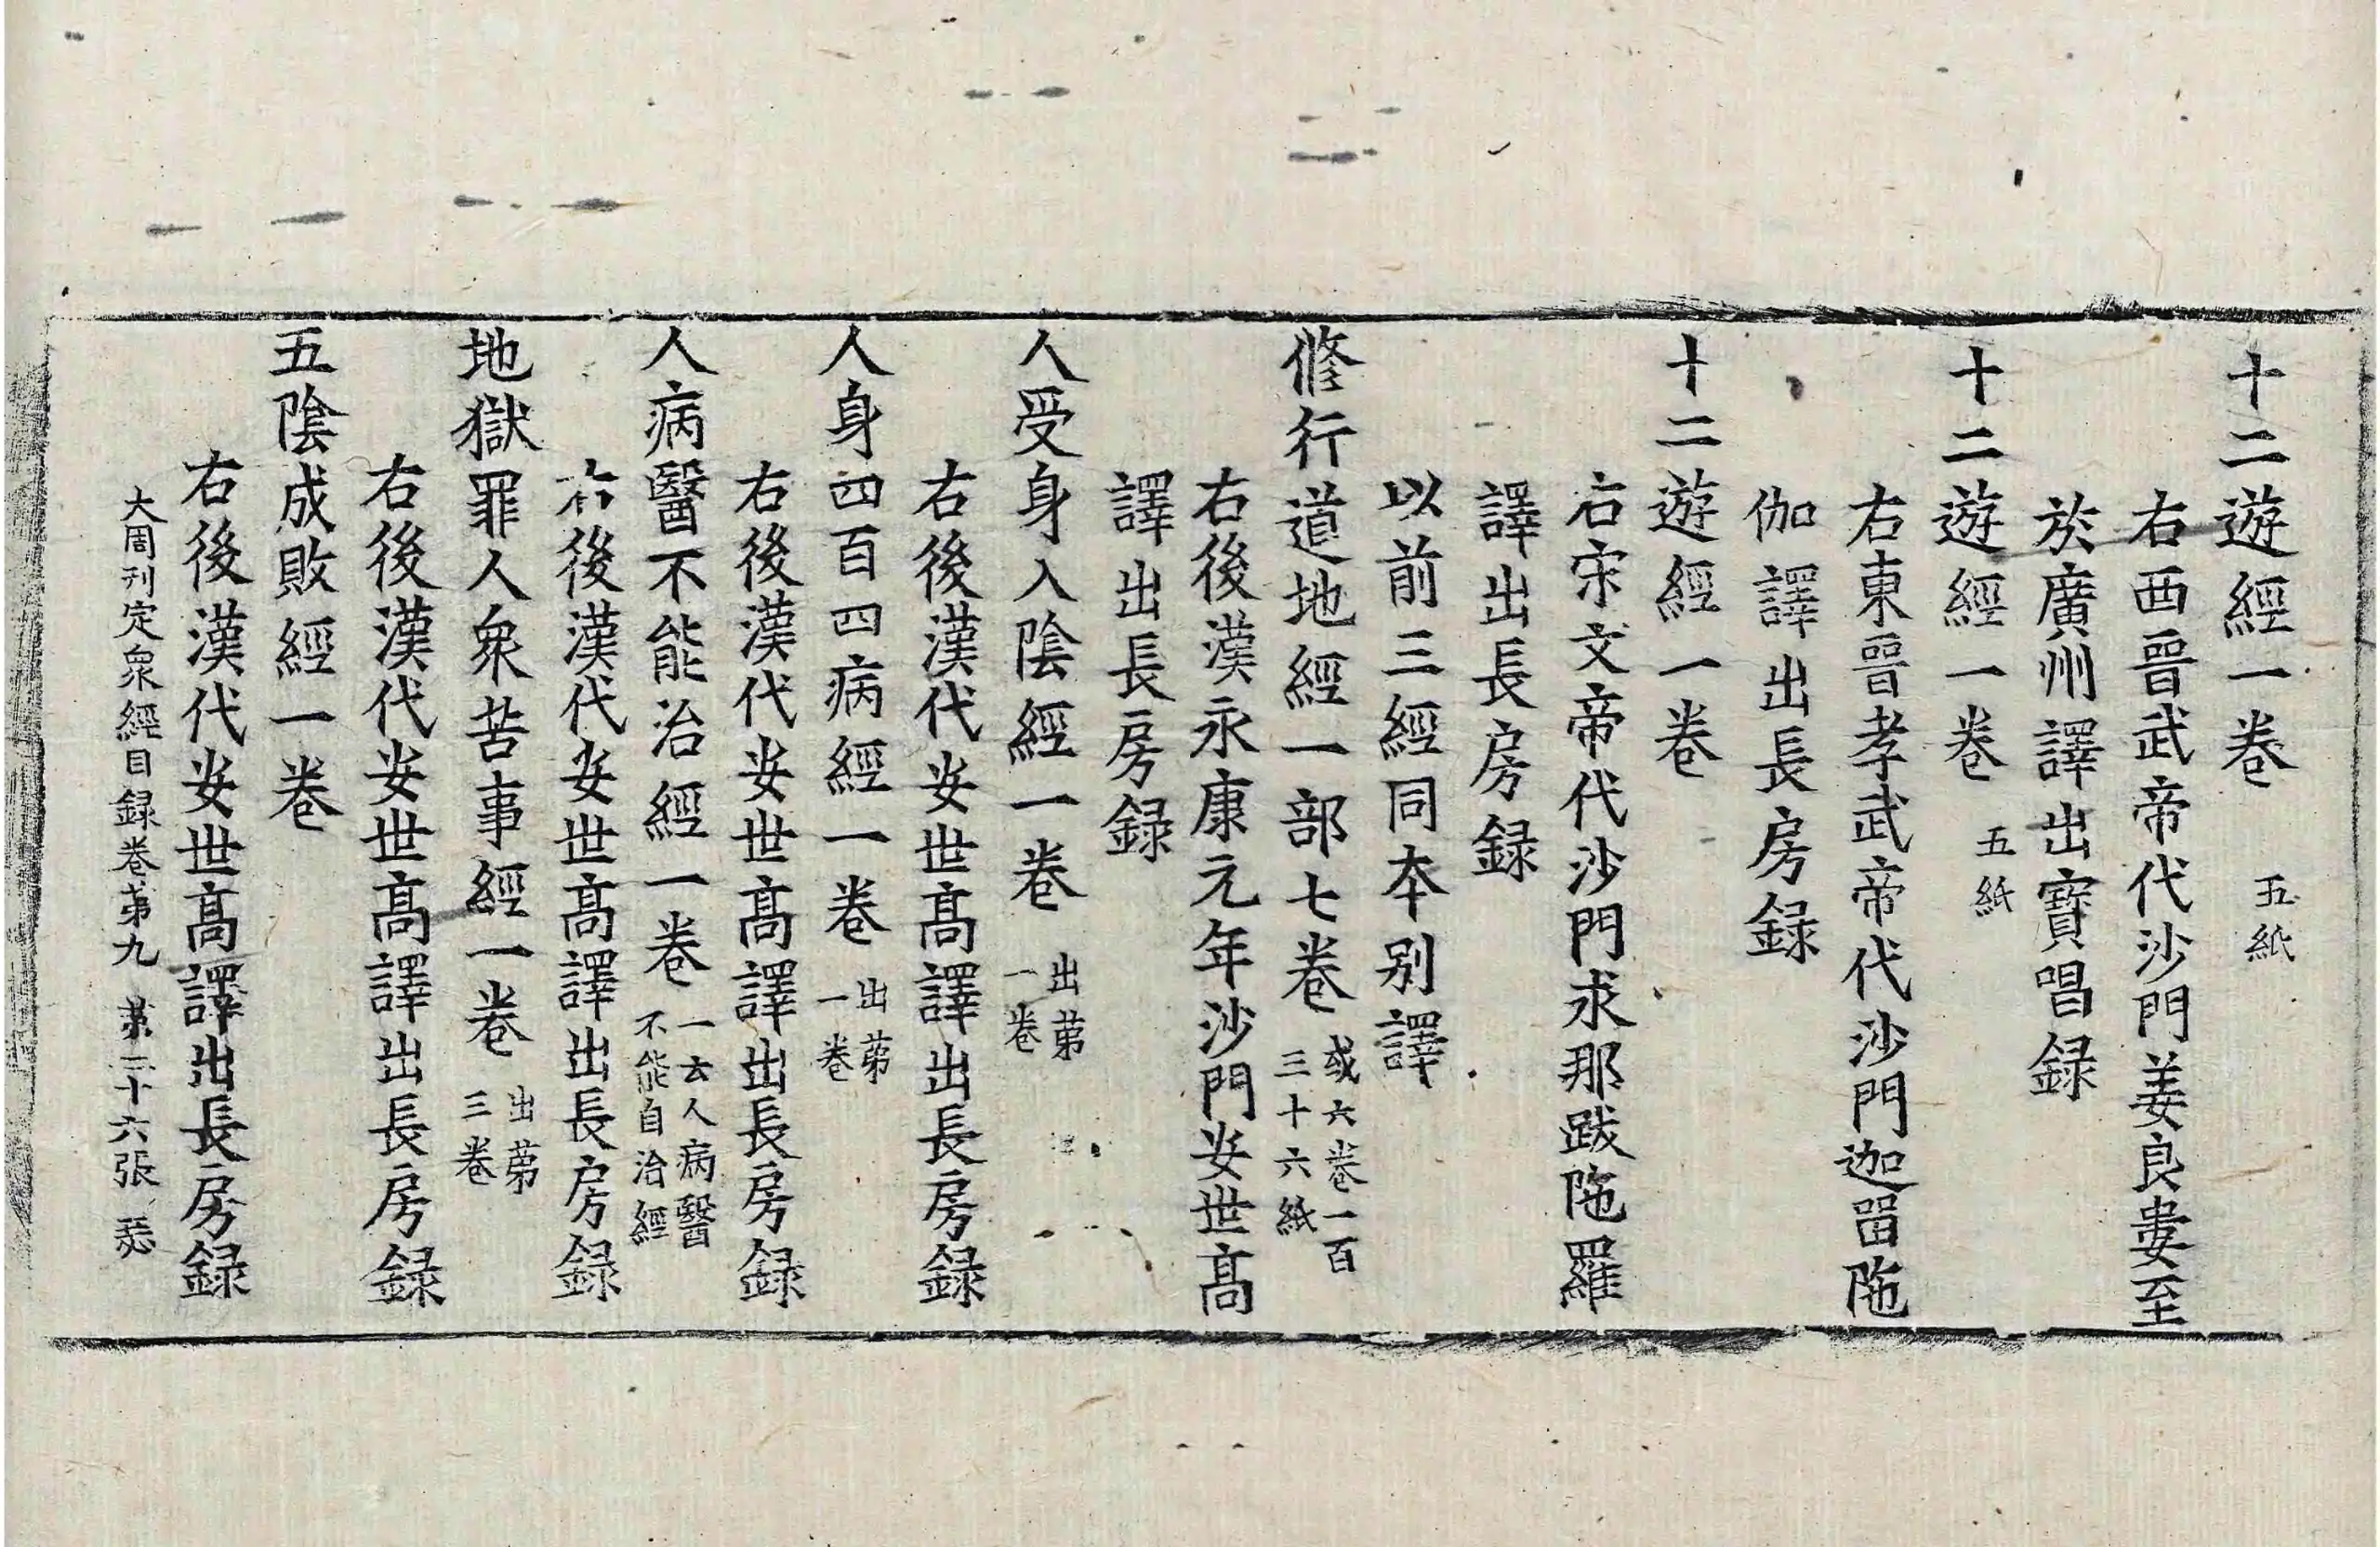 十二遊經一卷 五紙
右西晉武帝代沙門姜良婁至
於廣州譯出寶唱録
十二遊經一卷 五紙
右東晉孝武帝代沙門迦留陁
伽譯出長房録
十二遊經一卷
右宋文帝代沙門求那跋陁羅
譯出長房録
以前三經同本别譯
脩行道地經一部七卷 或六卷一百三十六紙
右後漢永康元年沙門安世髙
譯出長房録
人受身入陰經一卷 出苐一卷
右後漢代安世髙譯出長房録
人身四百四病經一卷 出苐一卷
右後漢代安世髙譯出長房録
人病醫不能治經一卷 一云人病醫不能自治經
右後漢代安世髙譯出長房録
地獄罪人衆苦事經一卷 出苐三卷
右後漢代安世髙譯出長房録
五陰成敗經一卷
右後漢代安世髙譯出長房録
大周刊定衆經目録卷苐九 苐二十六張